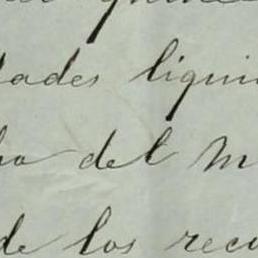 dades liqui
ho del M
de los recu